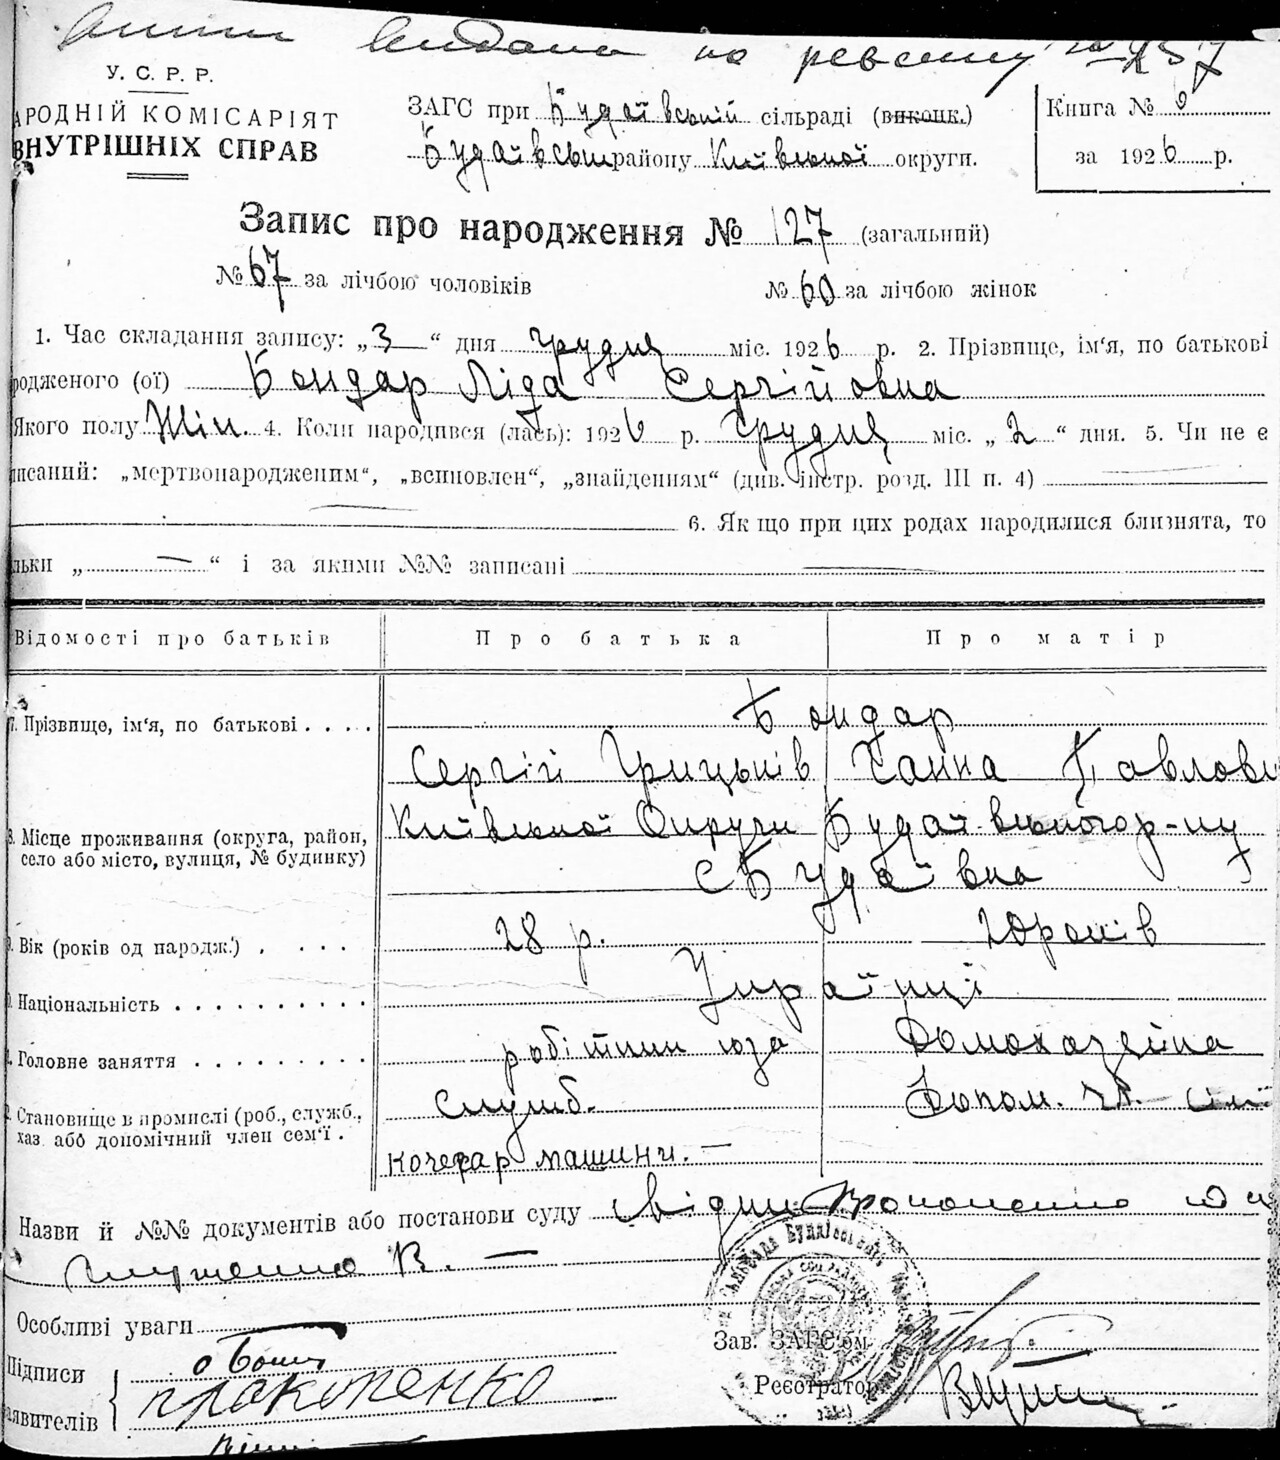 видана на
У. С. Р. Р.
АРОДНІЙ КОМІСАРІЯТ
ВНУТРІШНІХ СПРАВ
ЗАГС при Будаївській сільраді (виконк.)
Будаївськ району Київської округи.
Книга № 2
за 1926 р.
Запис про народження № 127 (загальний)
№ 67 за лічбою чоловіків № 60 за лічбою жінок
1. Час складання запису: „3“ дня Грудня міс. 1926 р. 2. Прізвище, ім'я, по батькові
родженого (ої) Бондар Ліда Сергійовна
Якого полу Жін. 4. Коли народився (лась): 1926 р. Грудня міс. „2“ дня. 5. Чи не є
писаний: „мертвонародженим“, „всиновлен“, „знайденням“ (див. інстр. розд. III п. 4)
6. Як що при цих родах народилися близнята, то
льки „—“ і за якими №№ записані
Відомості про батьків Про батька Про матір
7. Прізвище, ім'я, по батькові . . . . Бондар
Сергій Грицьків Ганна Павлов
8. Місце проживання (округа, район, село або місто, вулиця, № будинку) Київської Округи Будаївського р-ну
с Будаївка
9. Вік (років од народж.) . . . . 28 р. років
Національність . . . . . . . . . . Українці
Головне заняття . . . . . . . . робітник Домохазяйка
Становище в промислі (роб., служб., хаз. або допомічний член сем'ї . служб. Допом. чл. сім'ї
кочегар машини. —
Назви й №№ документів або постанови суду Свідки Прокопенко
В. —
Особливі уваги
Підписи
аявителів
Прокопенко
Зав. ЗАГС'ом
Реєстратор